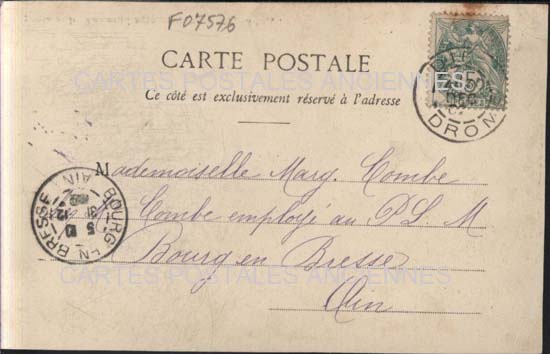 F07576
CARTE POSTALE
CARTES POSTALES ANCIENNES
Ce côté est exclusivement réservé à l'adresse
DROM
Mademoiselle Marg. Combe
Combe employé au P.L.M
Bourg en Bresse
Ain
BOURG EN BRESSE
AIN
CARTES POSTALES ANCIENNES